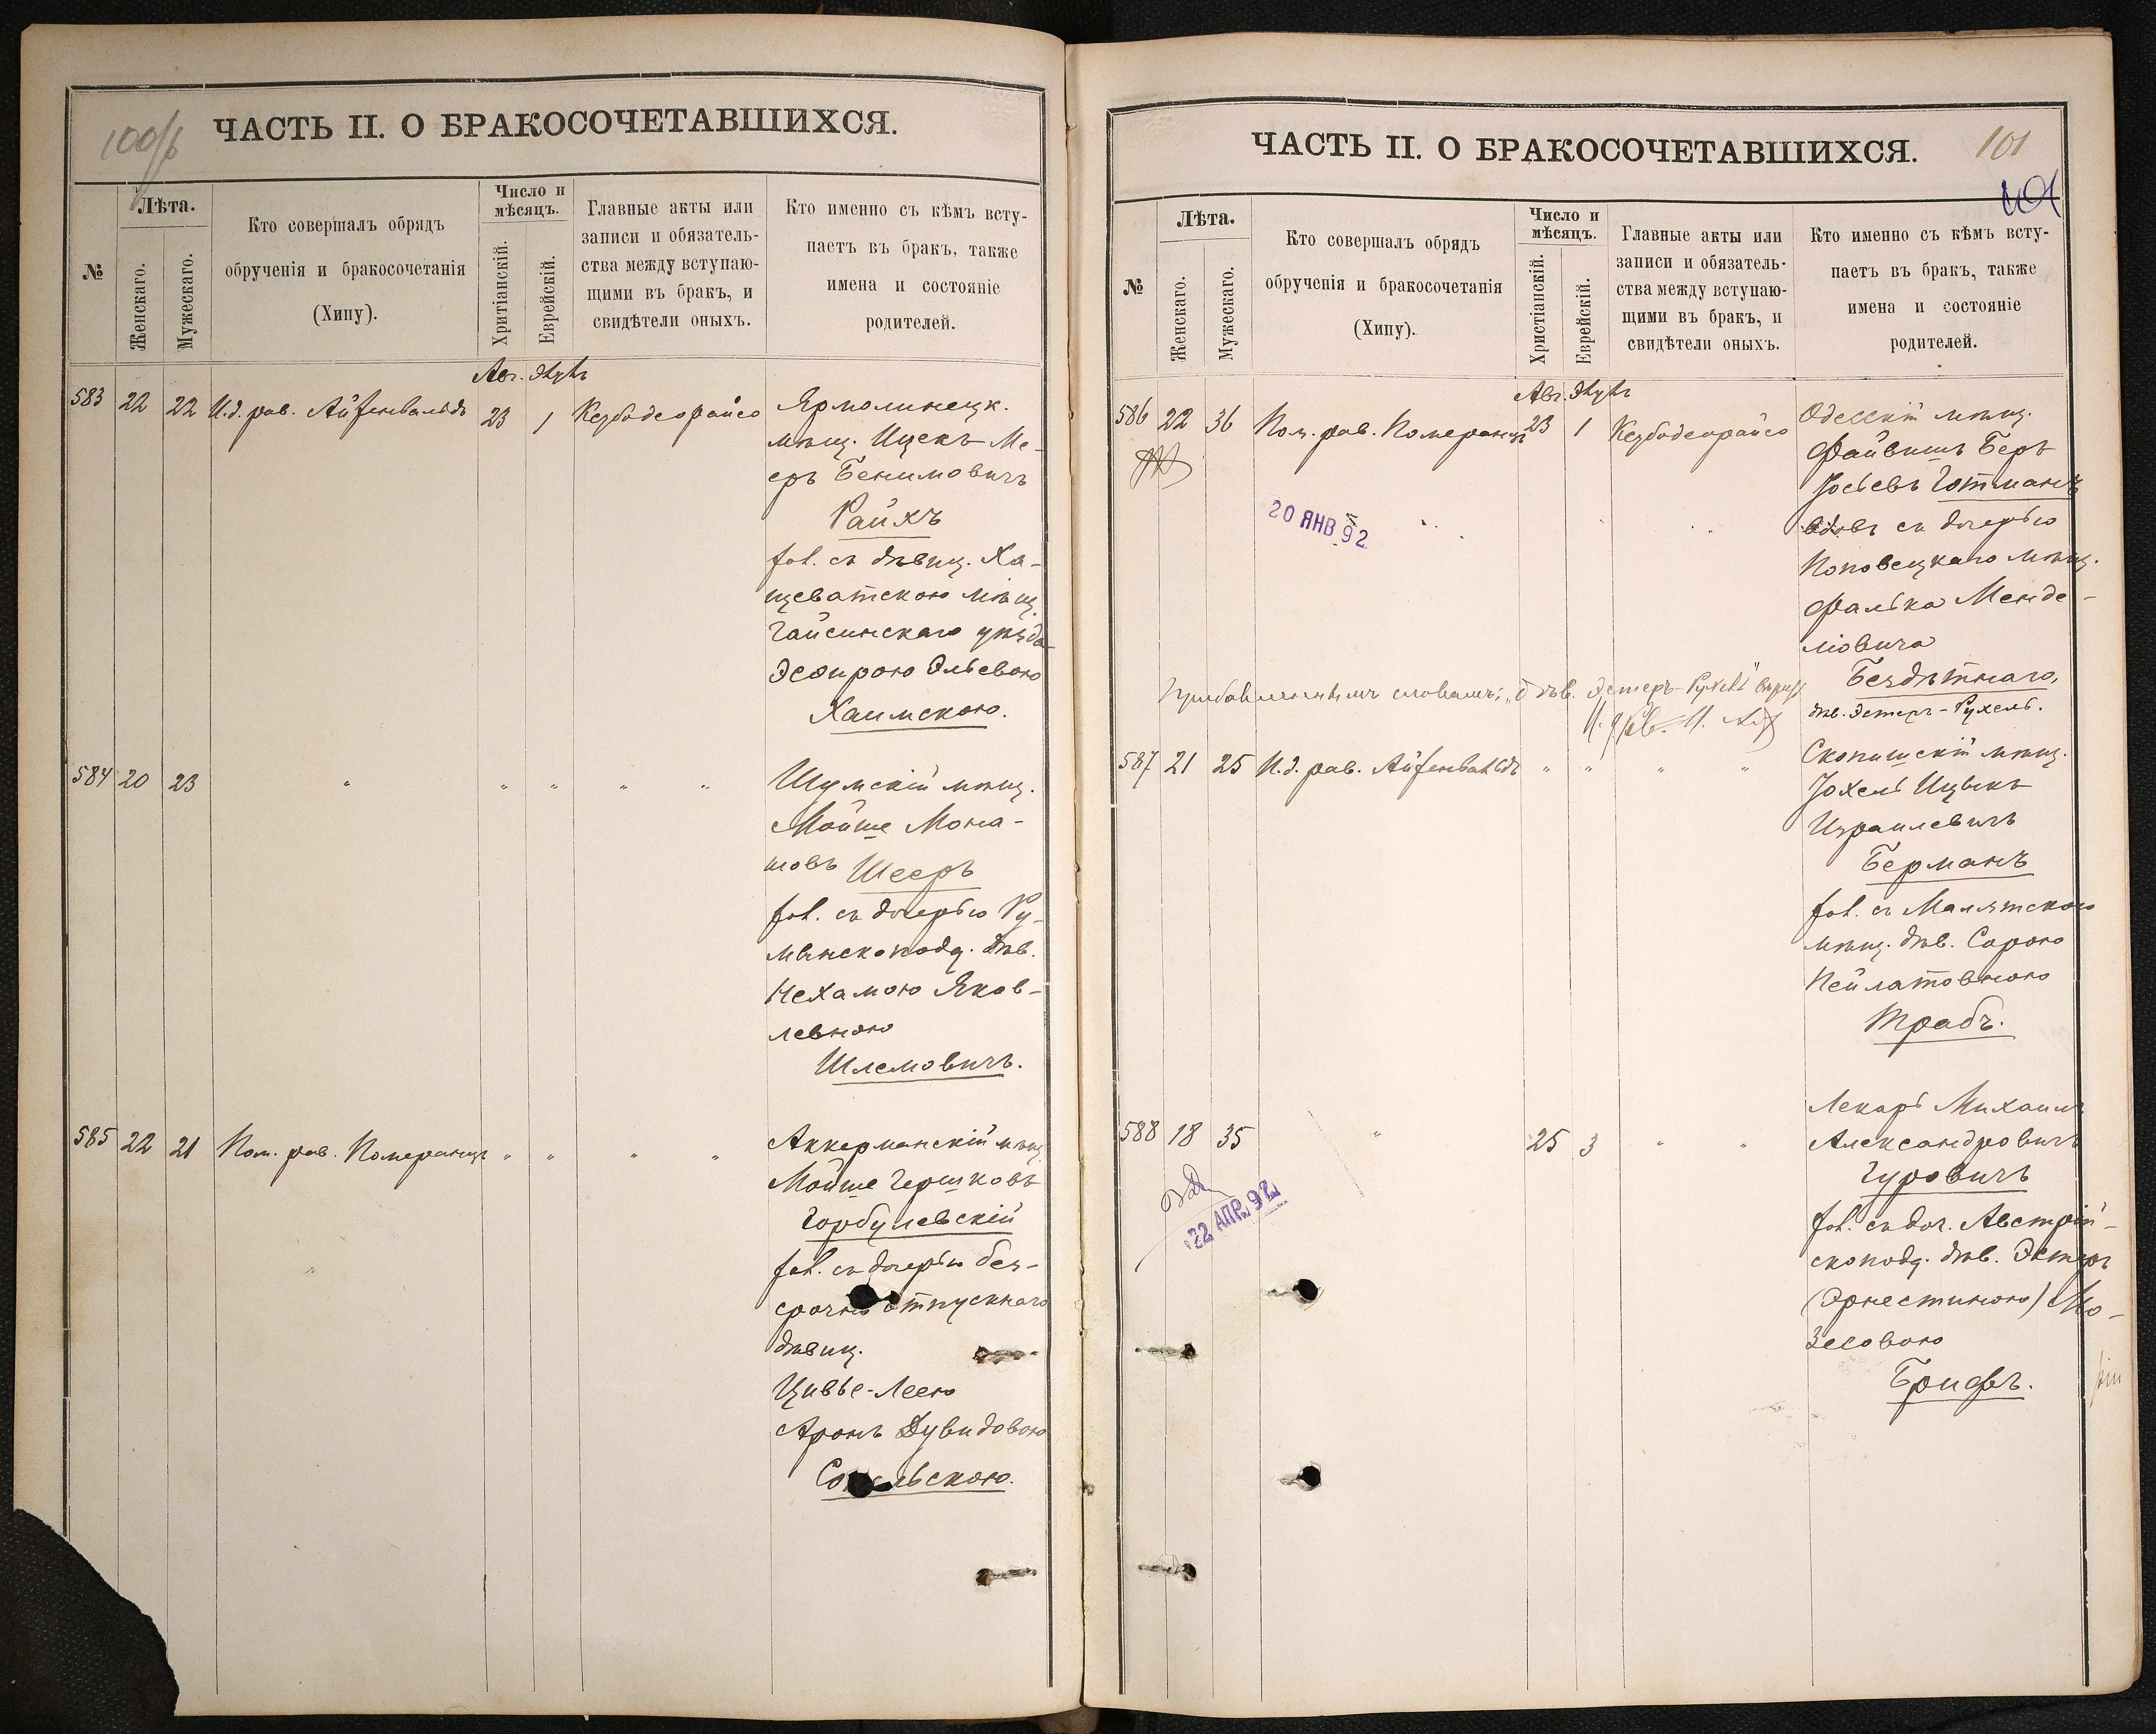 100/б
ЧАСТЬ II. О БРАКОСОЧЕТАВШИХСЯ.
№
Лѣта.
Женскаго.
Мужескаго.
Кто совершалъ обрядъ
обрученія и бракосочетанія
(Хипу).
Число и
мѣсяцъ.
Хритіанскій.
Еврейскій.
Главные акты или
записи и обязатель-
ства между вступаю-
щими въ бракъ, и
свидѣтели оныхъ.
Кто именно съ кѣмъ всту-
паетъ въ бракъ, также
имена и состояніе
родителей.
Авг. Элулъ
583 22 22 И.д. рав. Айзенвальдъ 23 1 Кезбодеорайсо Ярмолинецк.
мѣщ. Ицекъ Ме-
еръ Бенимовичъ
Райхъ
хол. съ дѣвиц. Ха-
щеватскою мѣщ.
Гайсинскаго уѣзда
Эсѳирою Эльевою
Хаимскою.
584 20 23 " " " " " Шумскій мѣщ.
Мойше Мона-
шовъ Шееръ
хол. съ дочерью Ру-
мынскопод. дѣв.
Нехамою Яков-
левною
Шлемовичъ.
585 22 21 Пом. рав. Померанцъ " " " " Аккерманскій мѣщ.
Мойше Гершковъ
Горбулевскій
хол. съ дочерью без-
срочно отпускнаго
дѣвиц.
Цивье-Леею
Аронъ Дувидовою
льскою.
ЧАСТЬ II. О БРАКОСОЧЕТАВШИХСЯ.
101
101
№
Лѣта.
Женскаго.
Мужескаго.
Кто совершалъ обрядъ
обрученія и бракосочетанія
(Хипу).
Число и
мѣсяцъ.
Христіанскій.
Еврейскій.
Главные акты или
записи и обязатель-
ства между вступаю-
щими въ бракъ, и
свидѣтели оныхъ.
Кто именно съ кѣмъ всту-
паетъ въ бракъ, также
имена и состояніе
родителей.
Авг. Элулъ
586 22 36 Пом. рав. Померанцъ 23 1 Кезбодеорайсо Одесскій мѣщ.
Файвишъ Беръ
Іосьевъ Готманъ
вдовъ съ дочерью
20 ЯНВ 92
Поповецкаго мѣщ.
Фалька Менде-
ловича
Бездѣтнаго,
дѣв. Эстеръ-Рухель.
Прибавленнымъ словамъ: "дѣв. Эстеръ-Рухель" вѣрить
587 21 25 И.д. рав. Айзенвальдъ " " " " Скопишскій мѣщ.
Іохель Ицыкъ
Израилевичъ
Берманъ
хол. съ Малятскою
мѣщ. дѣв. Сорою
Пейлатовною
Трабъ.
588 18 35 " 25 3 " " Лекарь Михаилъ
Александровичъ
Гуровичъ
22 АПР. 92
хол. съ доч. Австрій-
скопод. дѣв. Эстеръ
(Эрнестиною) Мо-
зесовою
Брифъ.